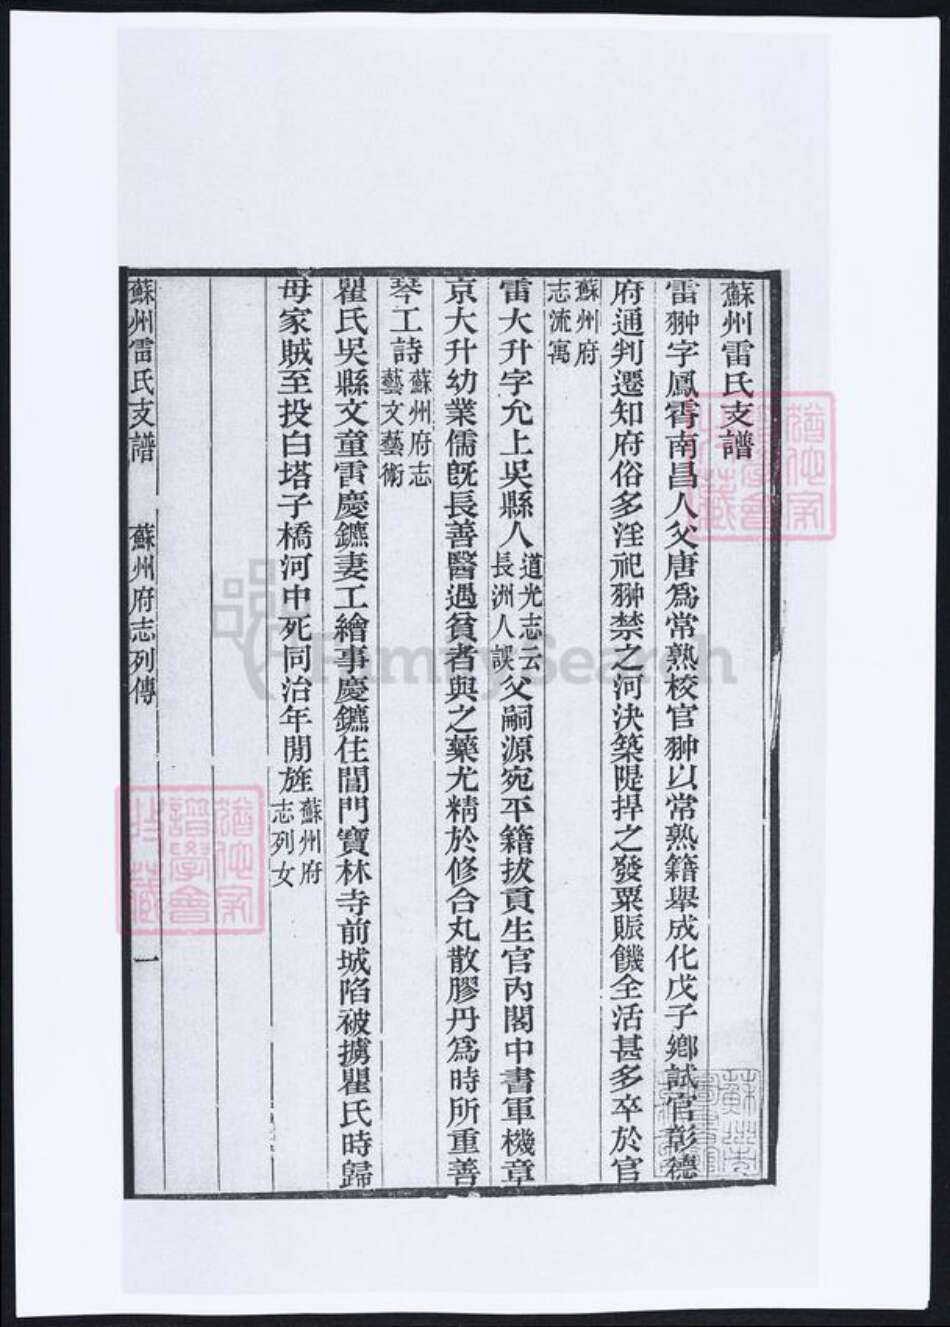 蘇州雷氏支譜
雷翀字鳳霄南昌人父唐爲常熟校官翀以常熟籍舉成化戊子鄉試官彰德
府通判遷知府俗多淫祀翀禁之河決築隄捍之發粟賑饑全活甚多卒於官
蘇州府
志流寓
雷大升字允上吳縣人道光志云
長洲人誤父嗣源宛平籍拔貢生官內閣中書軍機章
京大升幼業儒旣長善醫過貧者與之藥尤精於修合丸散膠丹爲時所重善
琴工詩蘇州府志
藝文藝術
瞿氏吳縣文童雷慶鑣妻工繪事慶鑣住閶門寶林寺前城陷被擄瞿氏時歸
母家賊至投白塔子橋河中死同治年間旌蘇州府
志列女
蘇州雷氏支譜 蘇州府志列傳 一
FamilySearch